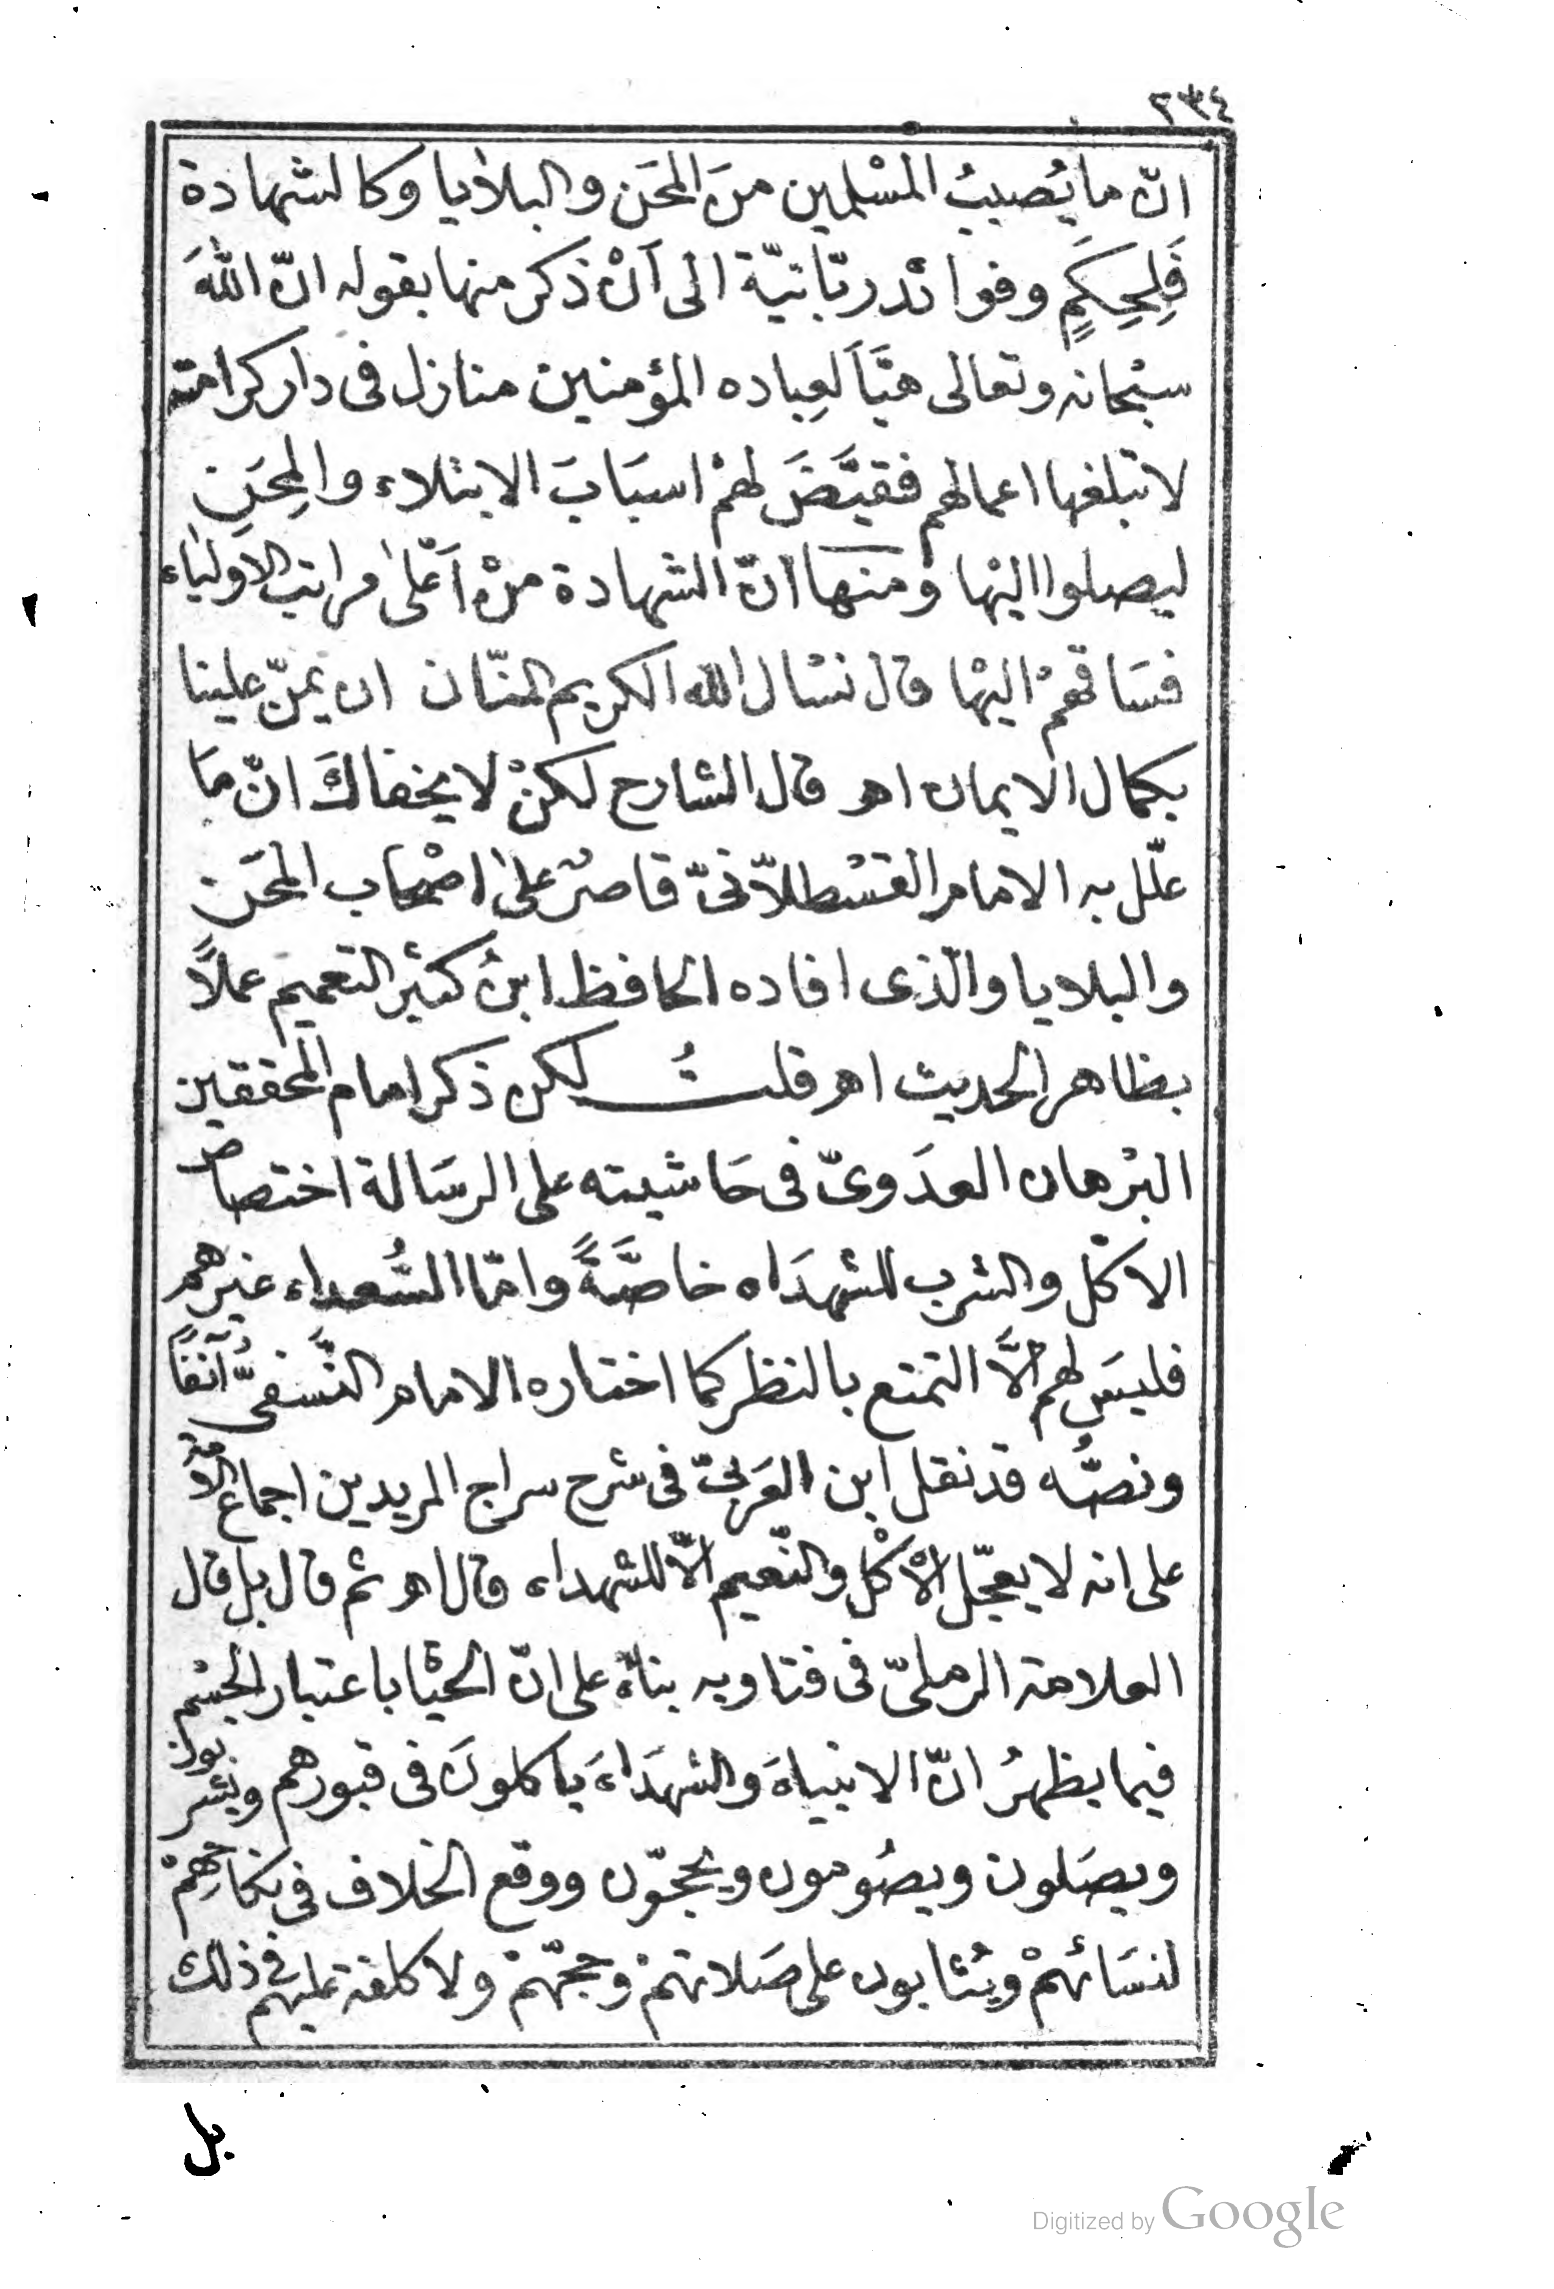 ٢٣٤
انّ ما يُصيبُ المسْلمين منَ المحَن والبلاٰيا وكالشهادة
فَلِحِكَمٍ وفوائد ربّانيّة الى اَنْ ذكر منها بقوله انّ اللهَ
سبْحانه وتعالى هيَّأَ لعِباده المؤمنين منازل فى دار كرامته
لا تبلغها اعمالهم فقيَّضَ لهمْ اسبَابَ الابتلاء والمِحَنِ
ليصلوا اليْها ومنها انّ الشهادة منْ اَعْلىٰ مراتب الاولياء
فسَاقهمْ اليْها قال نسْال الله الكريم المنّان ان يمنّ علينا
بكمال الايمان اھ قال الشارح لكنْ لا يخفاكَ انّ مَا
علّل به الامام القسْطلاّنىّ قاصرٌ علىٰ اصْحاب المحَن
والبلايا والّذى افاده الحافظ ابنُ كثير التعميم عملاً
بظاهر الحديث اھ قلتُ لكن ذكر امام المحققين
البرْهان العدَوىّ فى حَاشيته على الرسَالة اختصاص
الاكل والشرب للشهدَاء خاصَّةً وامّا السُّعداء غيرهم
فليسَ لهم الاَّ التمتع بالنظر كما اختاره الامام النَّسفىُّ آنفًا
ونصُّه قد نقل ابن العَربىّ فى شرح سراج المريدين اجماع الامة
على انه لا يعجّل الاْكْل والنّعيم الاّ للشهداء قال اھ ثم قال بل قال
العلامة الرملىّ فى فتاويه بناءً على انّ الحيْا باعتبار الجسْم
فيما يظهرُ انّ الانبياءَ والشهدَاءَ ياكلونَ فى قبورهم ويشربون
ويصَلون ويصُومون ويحجّون ووقع الخلاف فى نكاحِهمْ
لنسَائهمْ ويُثابون على صَلاتهمْ وحجّهمْ ولا كلفة عليهم فى ذلك
بل
Digitized by Google